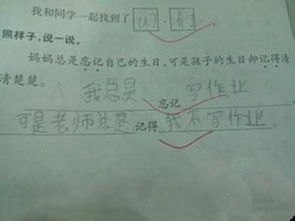 我和同学一起找到了
照样子,说一说。
妈妈总是忘记自己的生日,可是孩子的生日却记得清
清楚楚。
我总是 忘记 写作业
可是老师总是 记得 我不写作业